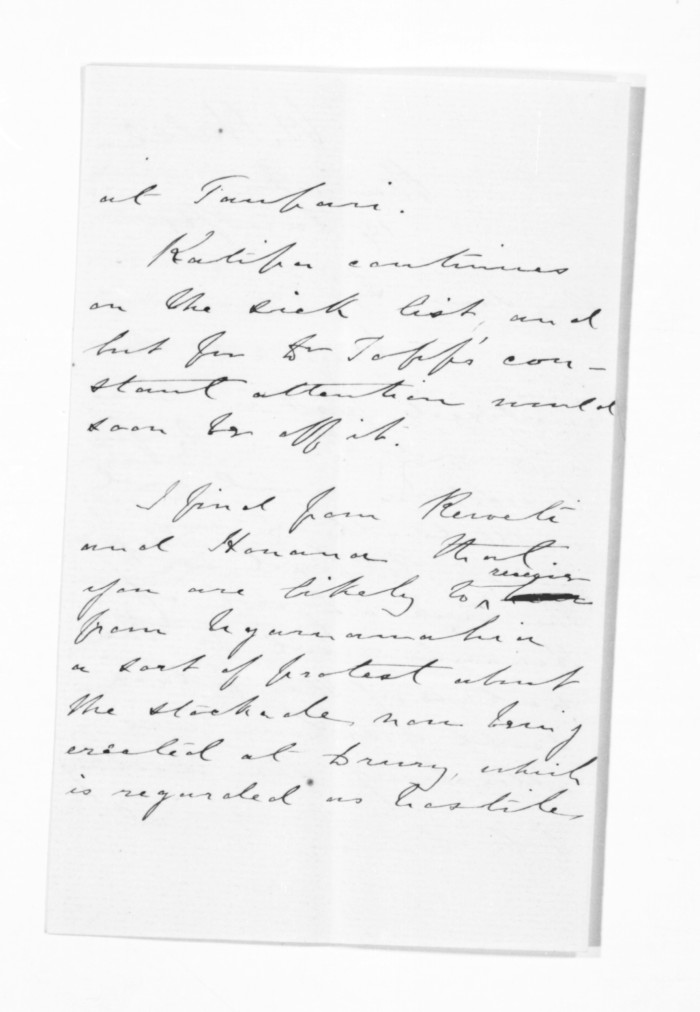 at Taupari.
Katipa continues
on the sick list, and
but for Dr Topp's con-
stant attention would
soon be off it.
I find from Reweti
and Honana that
you are likely to receive
from Ngamamahia
a sort of protest about
the stockade now being
erected at Drury, which
is regarded as hostile